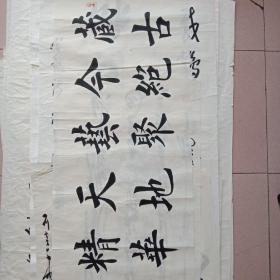 藏古
今絕
藝聚
天地
精華